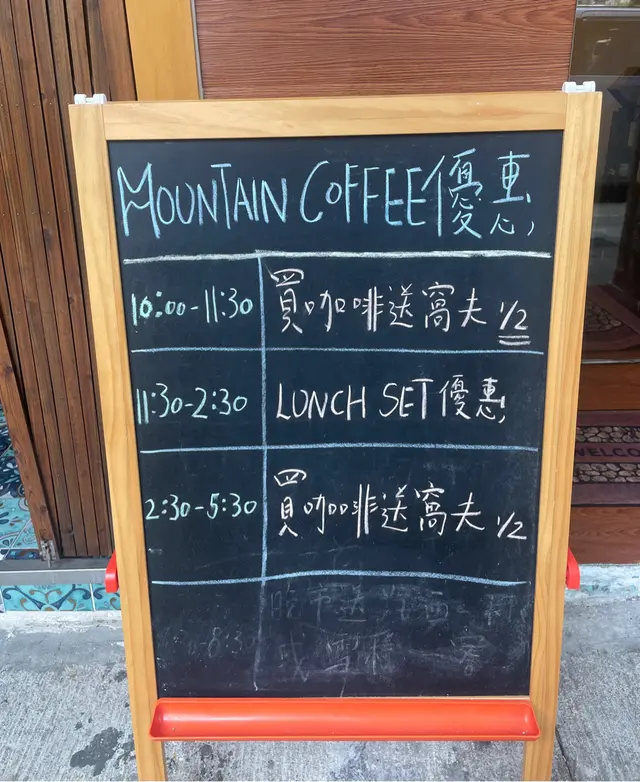 MOUNTAIN COFFEE優惠
10:00-11:30 買咖啡送窩夫 1/2
11:30-2:30 LUNCH SET優惠
2:30-5:30 買咖啡送窩夫 1/2
WELCO